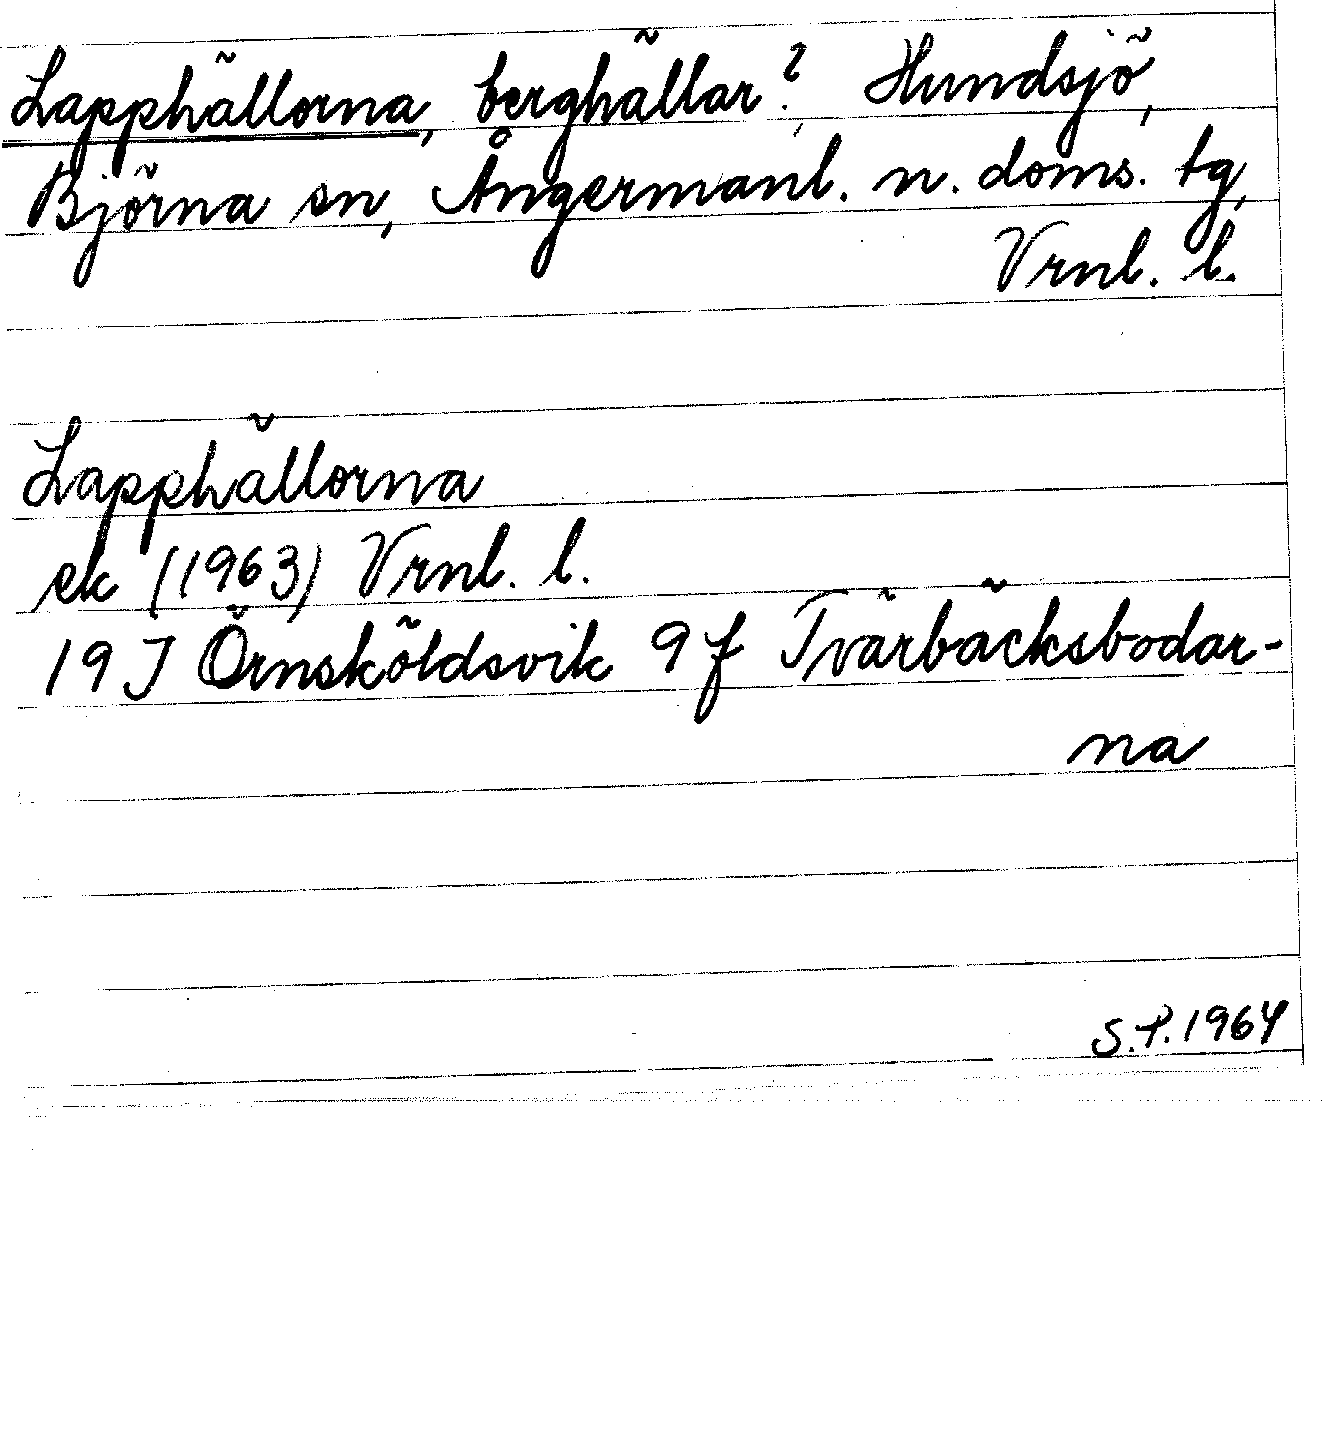 Lapphällorna, berghällar?, Hundsjö,
Björna sn, Ångermanl. n. doms. tg,
Vrnl. l.
Lapphällorna
ek (1963) Vrnl. l.
19 J Örnsköldsvik 9 f Tvärbäcksbodar-
na
S.P. 1964